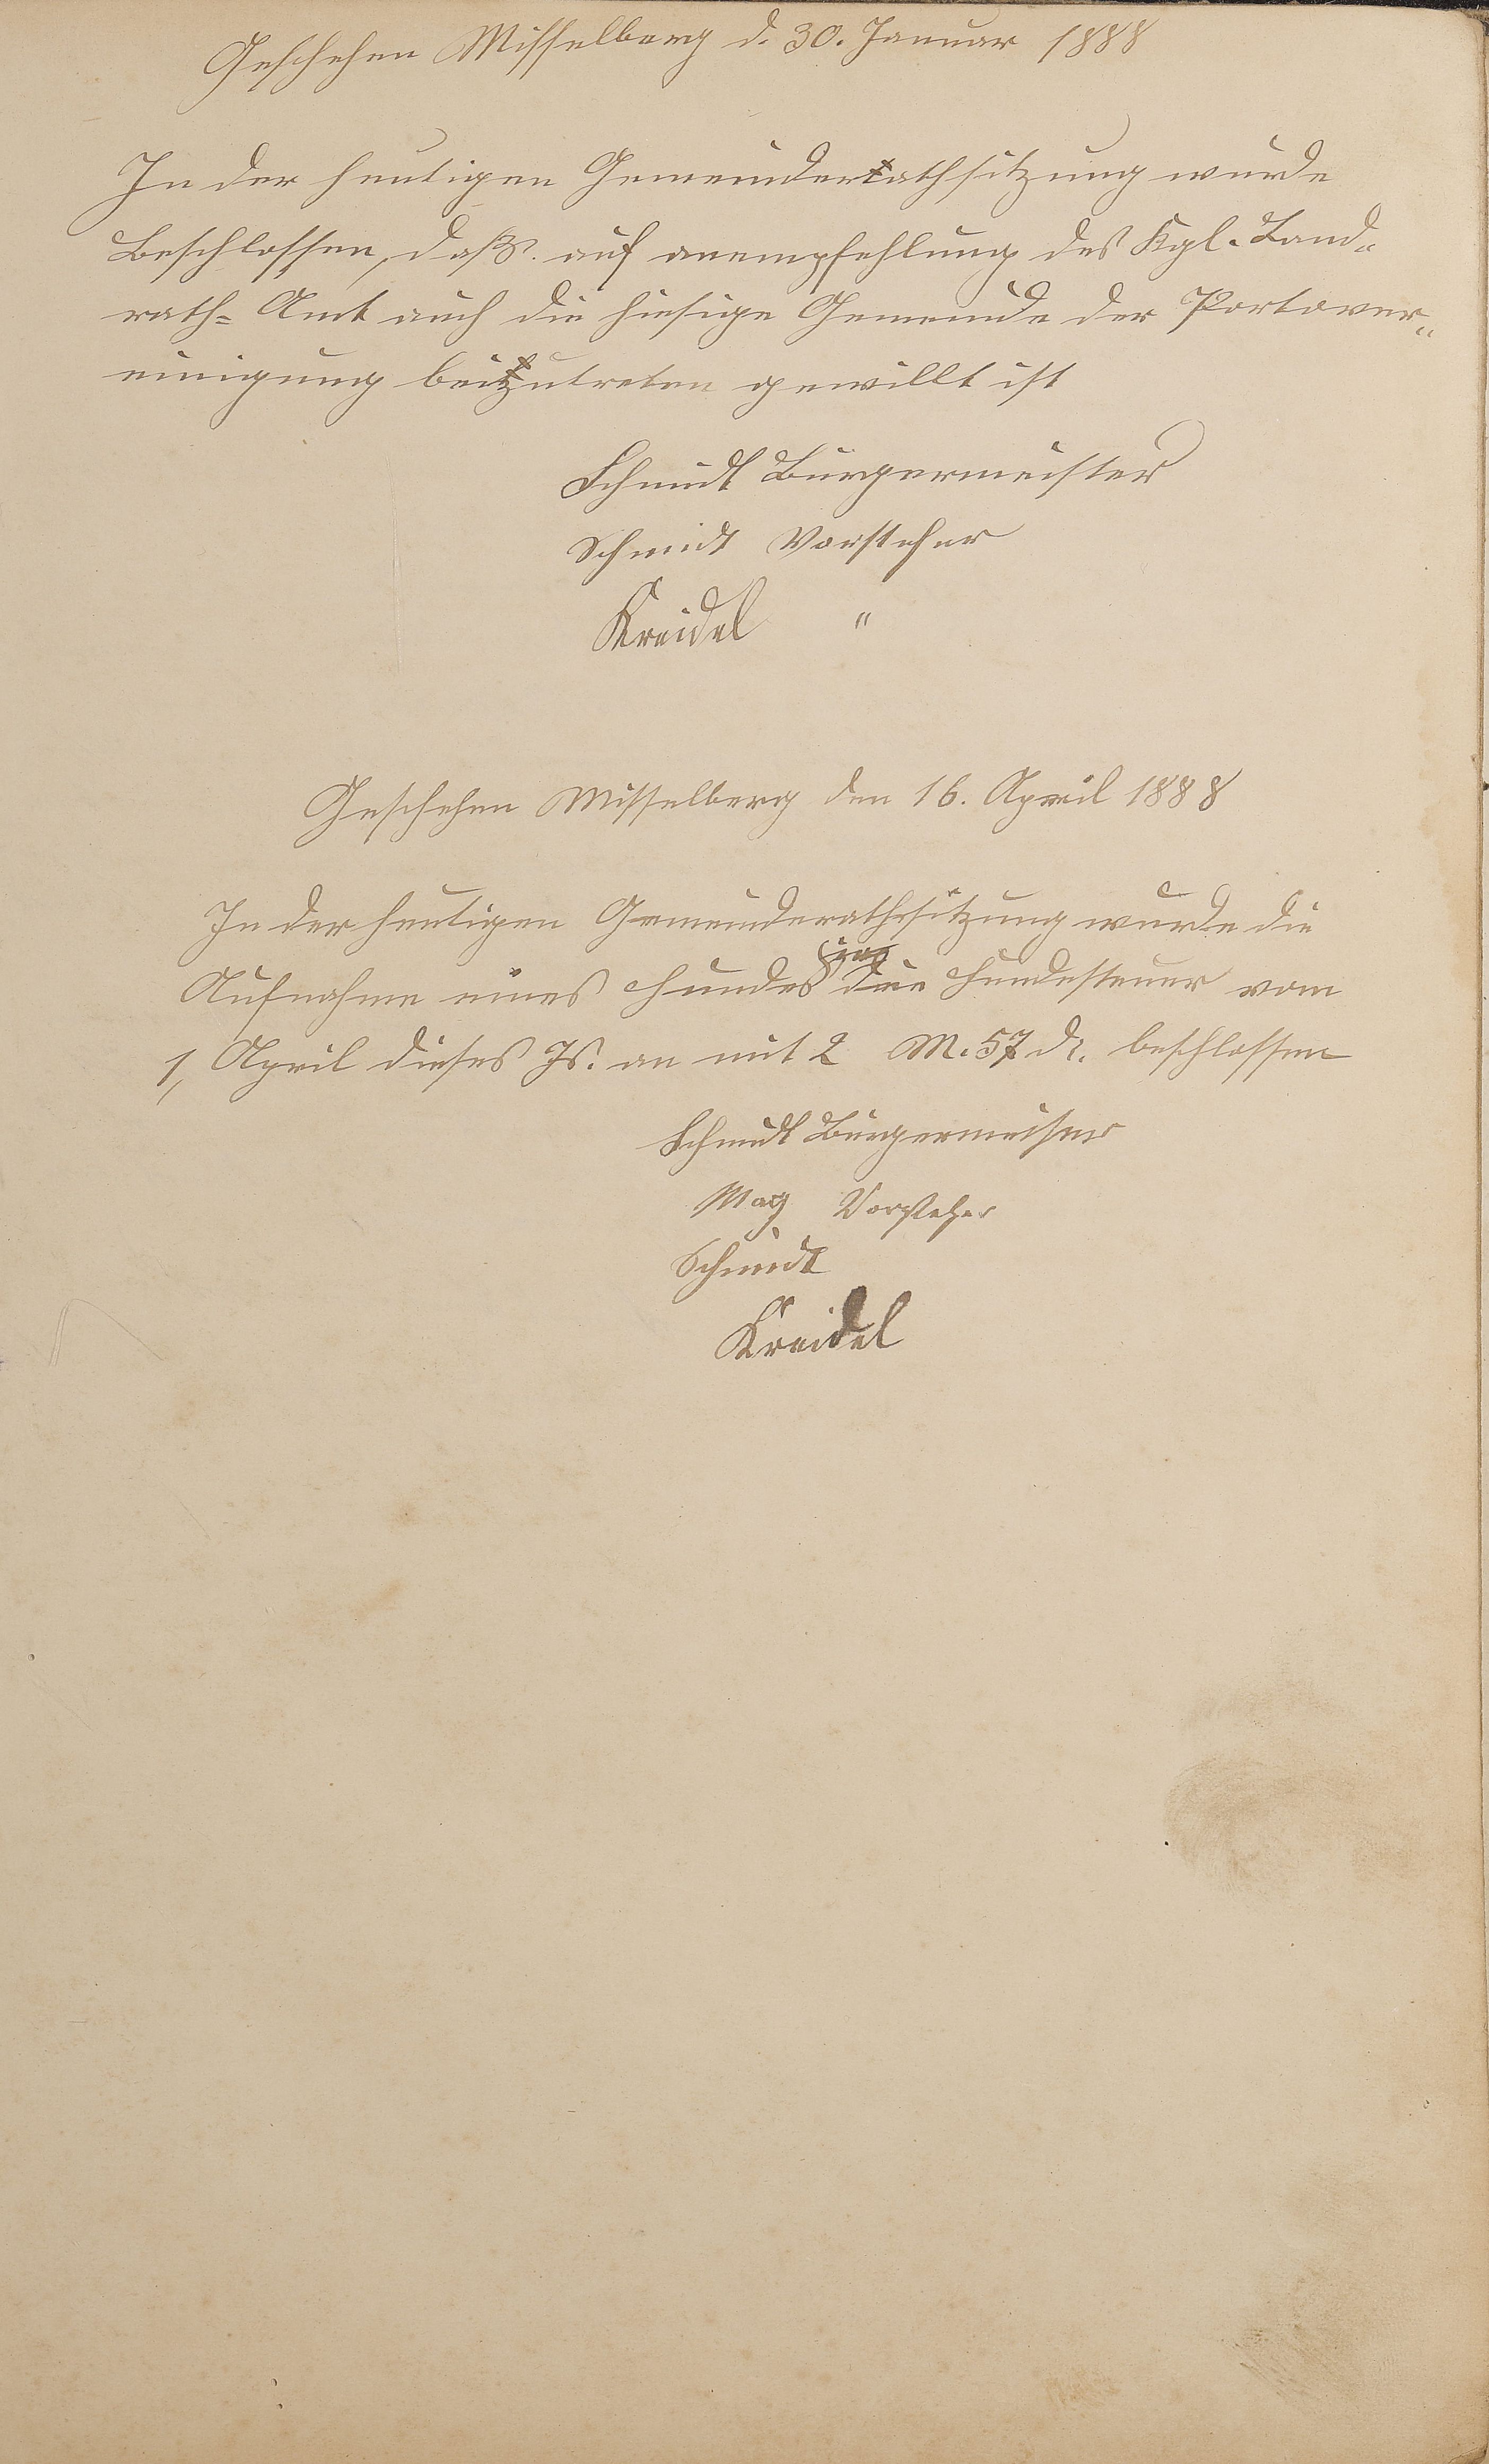 Geschehen Misselberg d. 30. Januar 1888
In der heutigen Gemeinderathsitzung wurde
Beschlossen, daß auf anempfehlung des Kgl. Land=
rath= Amt auch die hiesige Gemeinde der Portover„
einigung beizutreten gewillt ist
Schmidt Bürgermeister
Schmidt Vorsteher
Kreidel "
Geschehen Misselberg den 16. April 1888
In der heutigen Gemeinderathssitzung wurde die
Aufnahme eines Hundes in die Hundesteuer vom
1, April dieses Js. an mit 2 M. 57 d. beschlossen
Schmidt Bürgermeister
May Vorsteher
Schmidt
Kreidel